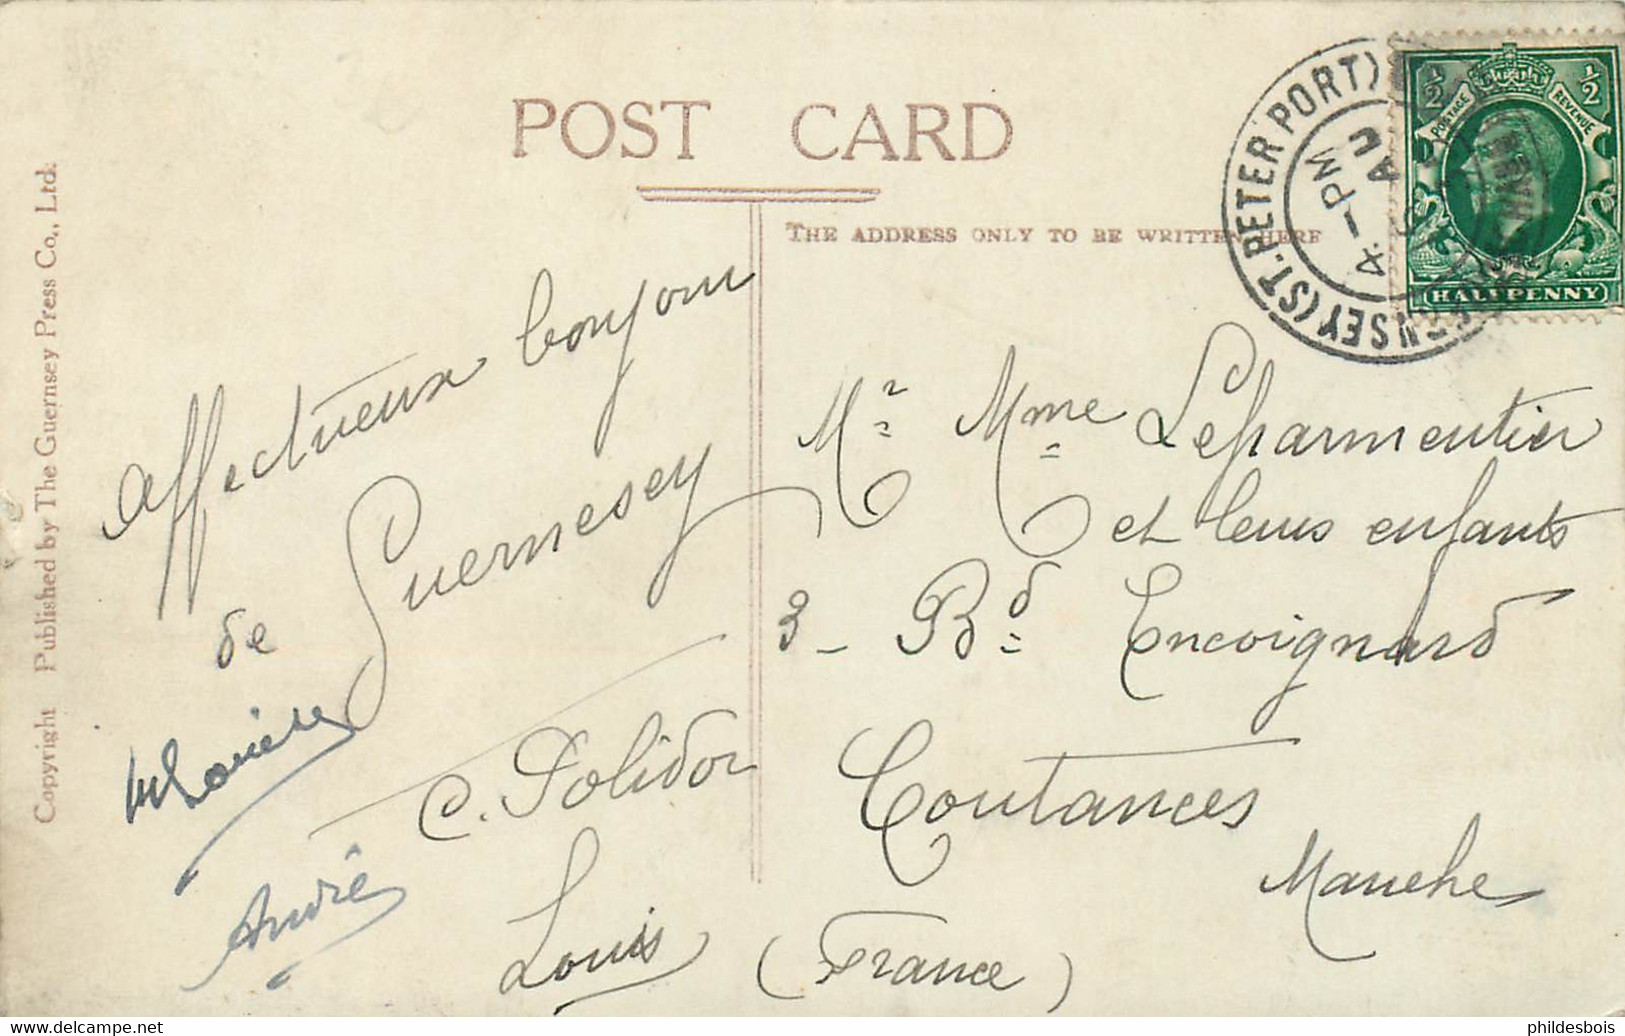 POST CARD
THE ADDRESS ONLY TO BE WRITTEN HERE
Copyright Published by The Guernsey Press Co., Ltd.
GUERNSEY (ST. PETER PORT)
4 - PM
AU
½ ½
POSTAGE REVENUE
HALFPENNY
Affectueux bonjour
de Guernesey
C. Polidor
André
Louis
Mr Mme Leparmentier
et leurs enfants
3 - Bd Encoignard
Coutances
Manche
(France)
delcampe.net
phildesbois